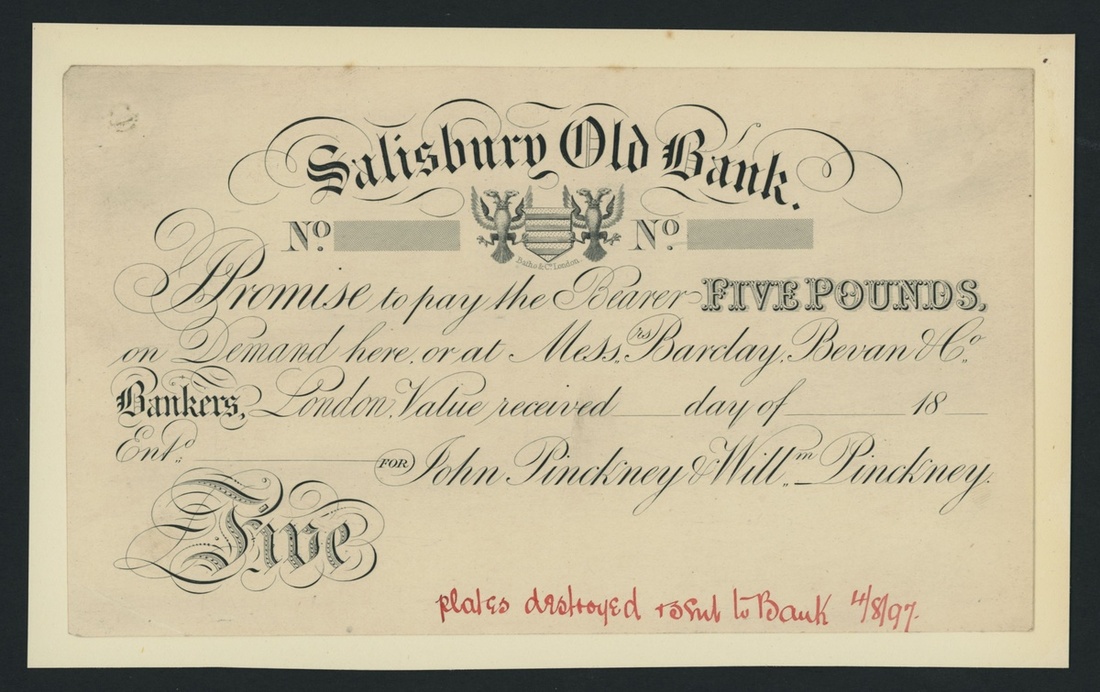 Salisbury Old Bank.
No. No.
Batho & Co. London.
I Promise to pay the Bearer FIVE POUNDS,
on Demand here, or at Messrs. Barclay, Bevan & Co.
Bankers, London, Value received day of 18
Entd. FOR John Pinckney & Willm. Pinckney.
Five
plates destroyed to Bank 4/8/97.